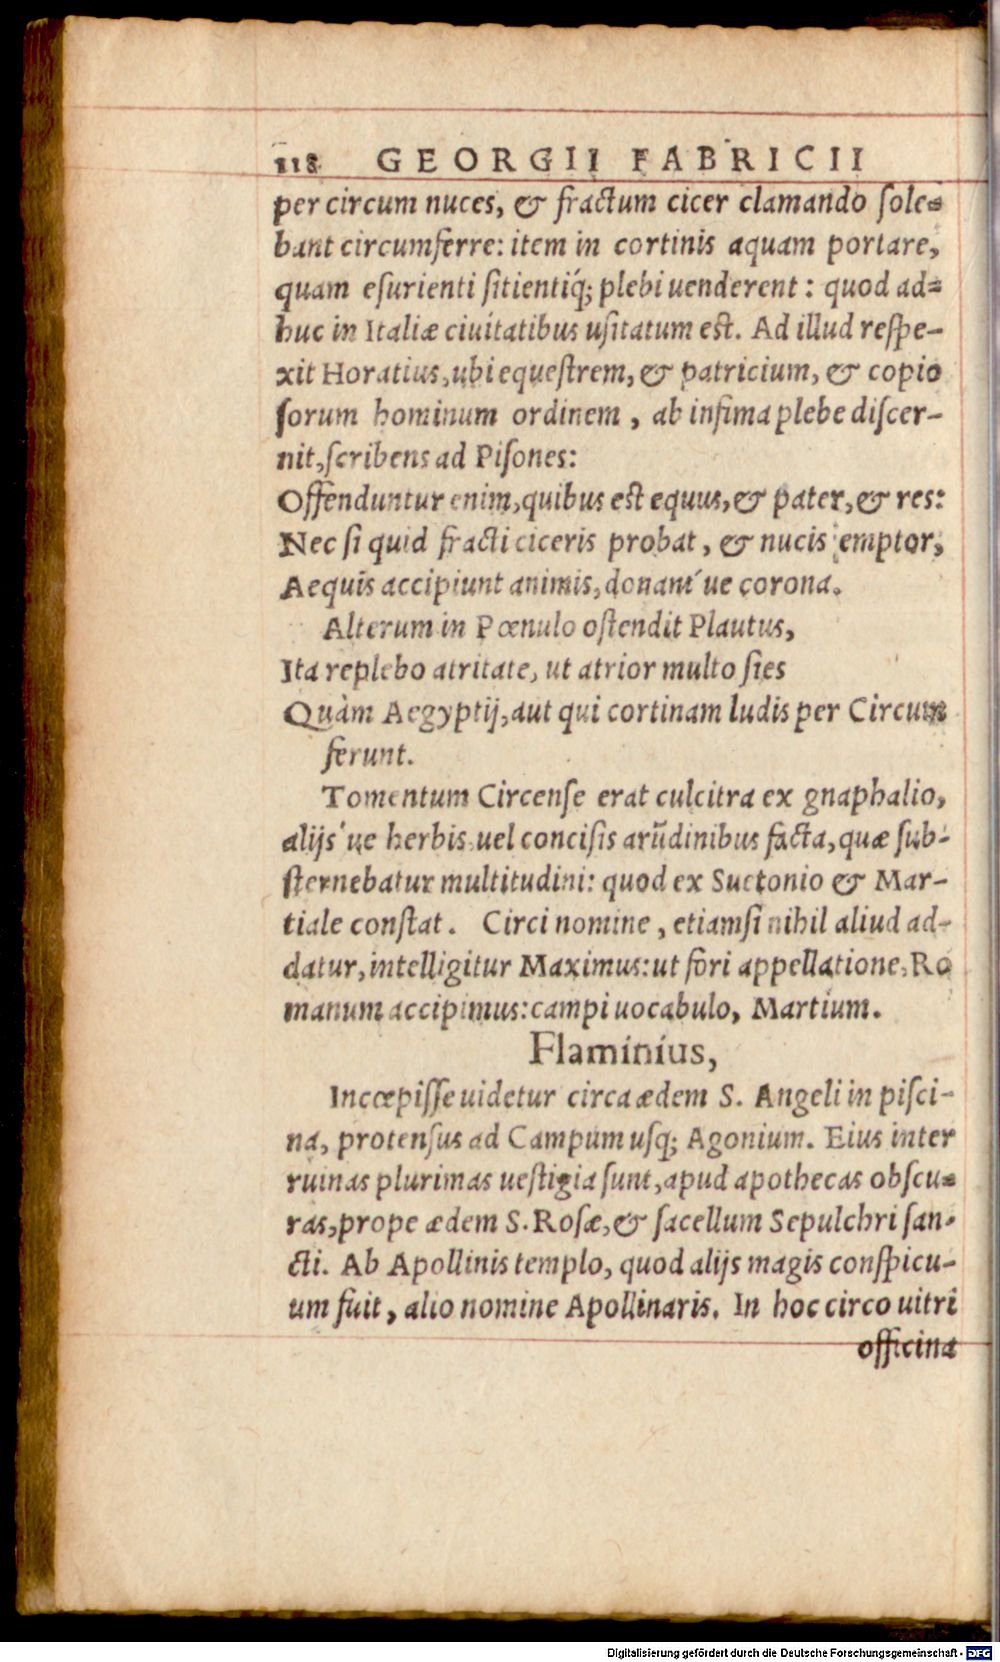 118 GEORGII FABRICII
per circum nuces, & fractum cicer clamando sole=
bant circumferre: item in cortinis aquam portare,
quam esurienti sitientiq́; plebi uenderent: quod ad=
huc in Italiæ ciuitatibus usitatum est. Ad illud respe-
xit Horatius, ubi equestrem, & patricium, & copio
sorum hominum ordinem, ab infima plebe discer-
nit, scribens ad Pisones:
Offenduntur enim, quibus est equus, & pater, & res:
Nec si quid fracti ciceris probat, & nucis emptor,
Aequis accipiunt animis, donant´ue corona.
Alterum in Pœnulo ostendit Plautus,
Ita replebo atritate, ut atrior multo sies
Quàm Aegyptij, aut qui cortinam ludis per Circum
ferunt.
Tomentum Circense erat culcitra ex gnaphalio,
alijs´ue herbis uel concisis arūdinibus facta, quæ sub-
sternebatur multitudini: quod ex Suetonio & Mar-
tiale constat. Circi nomine, etiamsi nihil aliud ad-
datur, intelligitur Maximus: ut fori appellatione, Ro
manum accipimus: campi uocabulo, Martium.
Flaminius,
Incœpisse uidetur circa ædem S. Angeli in pisci-
na, protensus ad Campum usq; Agonium. Eius inter
ruinas plurimas uestigia sunt, apud apothecas obscu=
ras, prope ædem S. Rosæ, & sacellum Sepulchri san-
cti. Ab Apollinis templo, quod alijs magis conspicu-
um fuit, alio nomine Apollinaris. In hoc circo uitri
officina
Digitalisierung gefördert durch die Deutsche Forschungsgemeinschaft - DFG